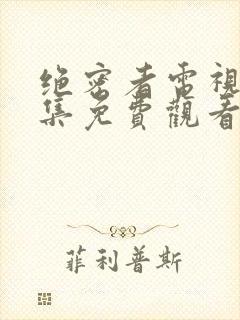 绝密者電視
集免費觀看
菲利普斯